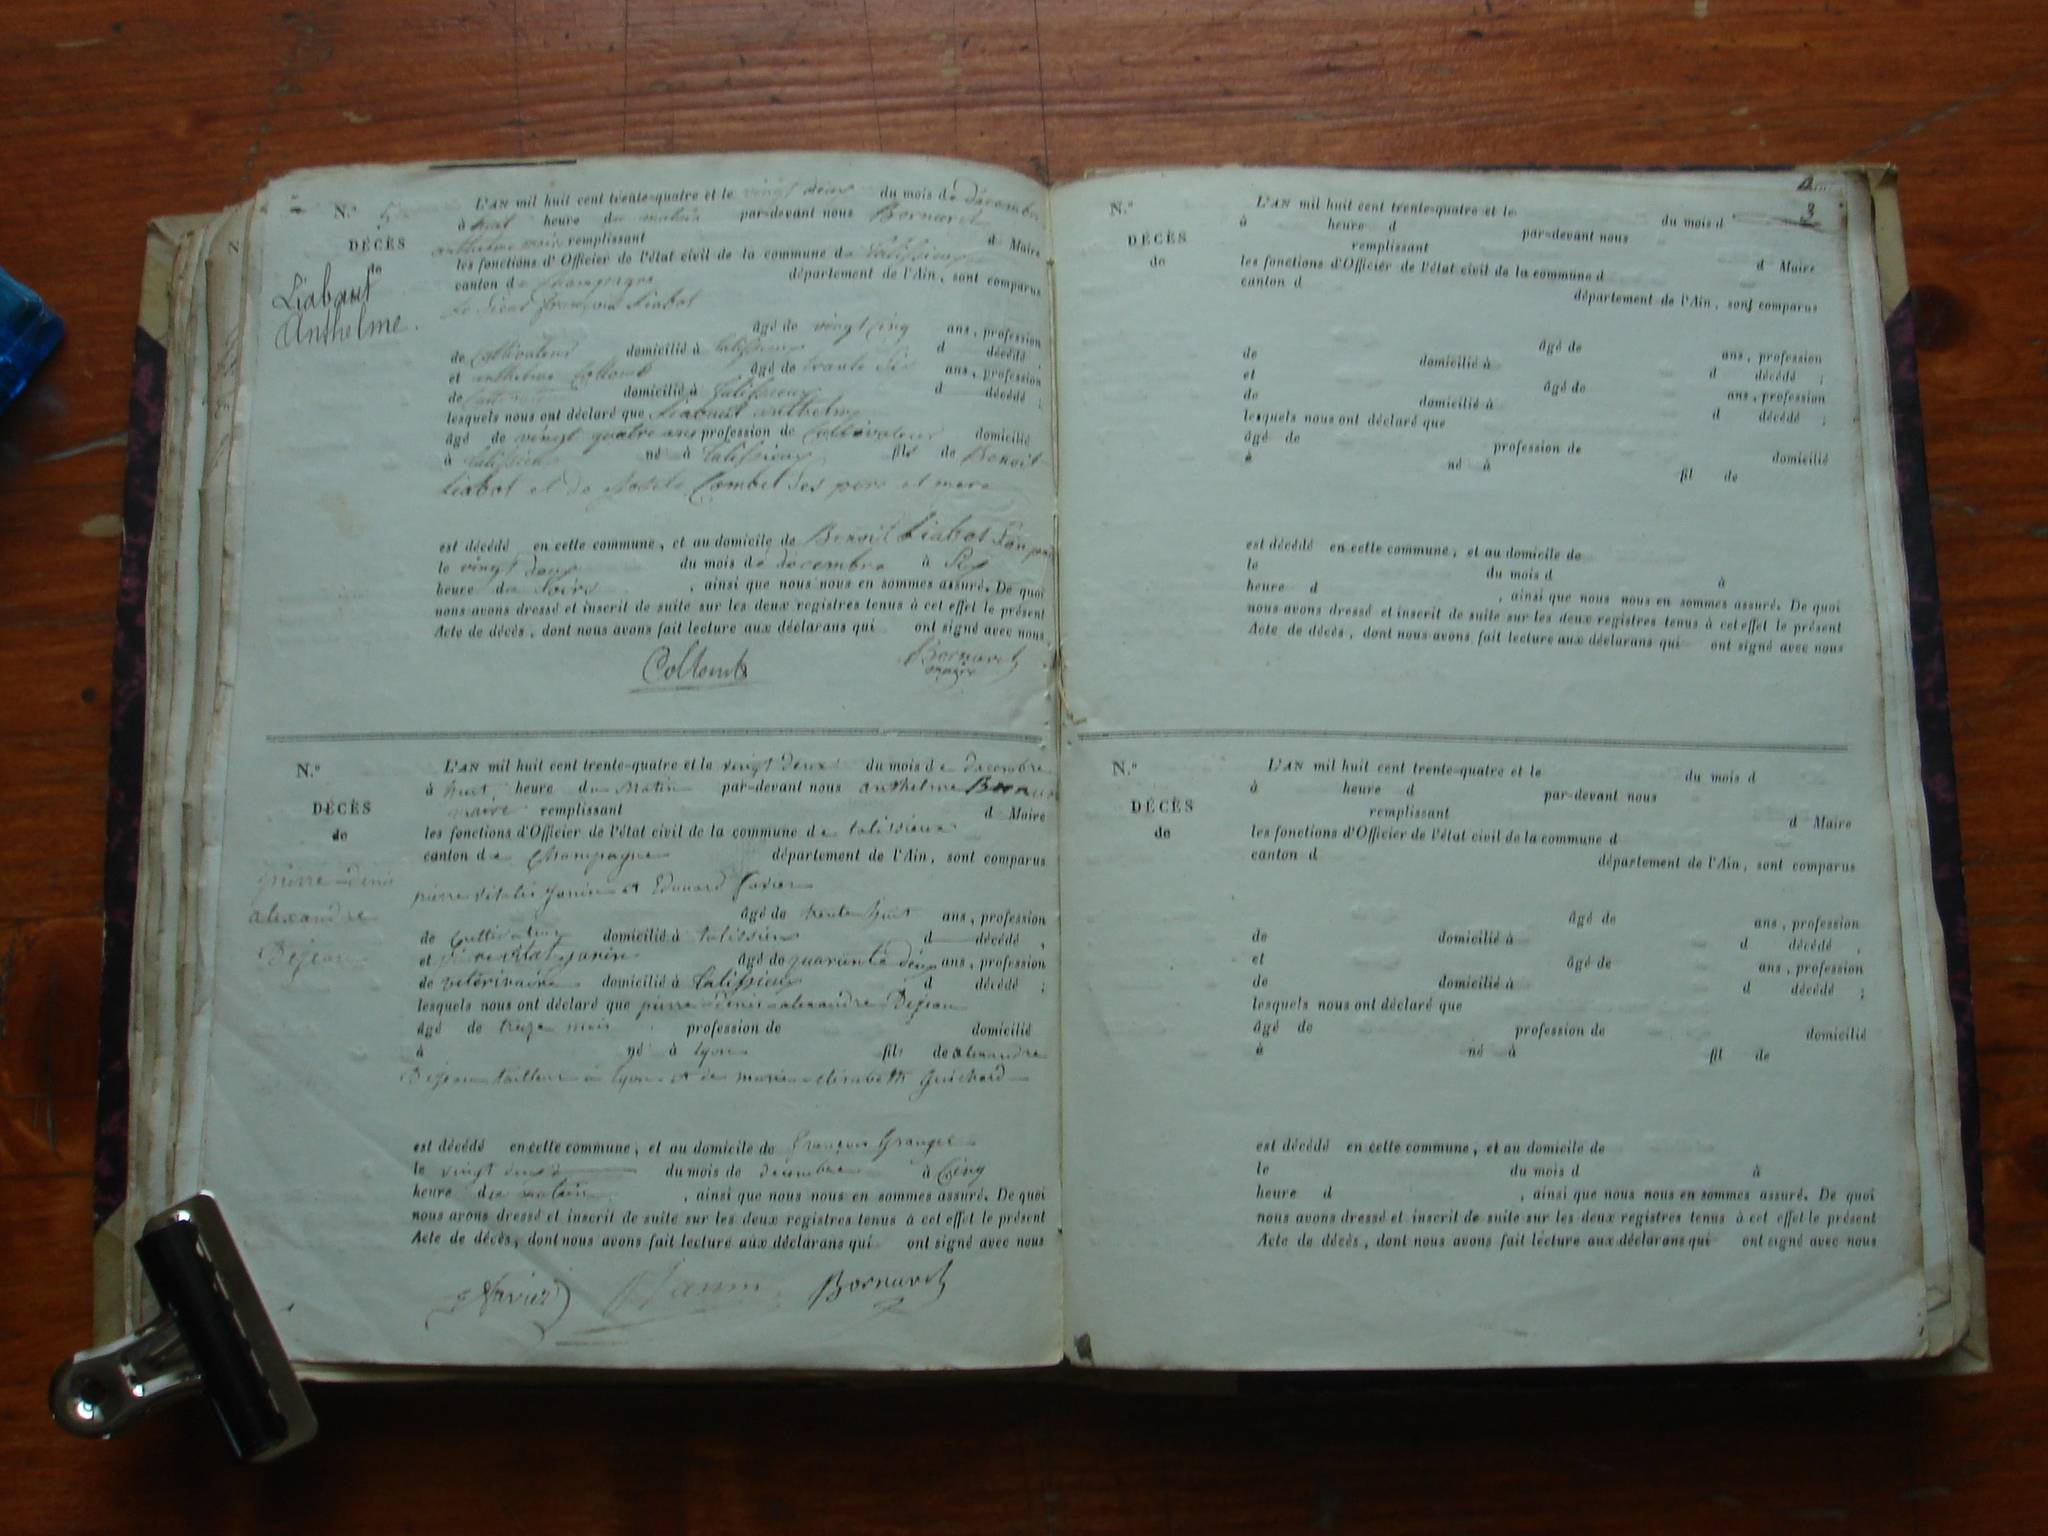 N.° 5
DÉCÈS
de
Liabaut
Anthelme.
L'AN mil huit cent trente-quatre et le vingt deux du mois de décembre
à huit heure du matin par-devant nous Bornaret
anthelme maire remplissant d Maire
les fonctions d'Officier de l'état civil de la commune de talissieux
canton de Champagne département de l'Ain, sont comparus
le Sieur françois Liabot
âgé de vingt cinq ans, profession
de Cultivateur domicilié à talissieux d décédé ;
et anthelme Collomb âgé de trante six ans, profession
de domicilié à talissieux d décédé ;
lesquels nous ont déclaré que Liabaut anthelme
âgé de vingt quatre ans profession de Cultivateur domicilié
à talissieux né à talissieux fils de Benoit
Liabot et de Combet Ses pere et mere
est décédé en cette commune, et au domicile de Benoit Liabot Son père
le vingt deux du mois de décembre à Six
heure du Soire , ainsi que nous nous en sommes assuré. De quoi
nous avons dressé et inscrit de suite sur les deux registres tenus à cet effet le présent
Acte de décès, dont nous avons fait lecture aux déclarans qui ont signé avec nous
Collomb Bornaret
maire
N.°
DÉCÈS
de
pierre-denis
alexandre
Dejean
L'AN mil huit cent trente-quatre et le vingt deux du mois de decembre
à huit heure du Matin par-devant nous anthelme Bornaret
maire remplissant d Maire
les fonctions d'Officier de l'état civil de la commune de talissieux
canton de Champagne département de l'Ain, sont comparus
pierre vitalis Janin et Edouard Favier
âgé de trente huit ans, profession
de Cultivateur domicilié à talissieux d décédé ,
et pierre vital janin âgé de quarante deux ans, profession
de vétérinaire domicilié à talissieux d décédé ;
lesquels nous ont déclaré que pierre-denis-alexandre Dejean
âgé de treize mois profession de domicilié
à né à Lyon fils de alexandre
Dejean tailleur à Lyon et de marie-elisabeth Guichard
est décédé en cette commune, et au domicile de françois Granger
le vingt deux du mois de decembre à Cinq
heure du matin , ainsi que nous nous en sommes assuré. De quoi
nous avons dressé et inscrit de suite sur les deux registres tenus à cet effet le présent
Acte de décès, dont nous avons fait lecture aux déclarans qui ont signé avec nous
Favier Janin Bornaret
3
N.°
DÉCÈS
de
L'AN mil huit cent trente-quatre et le du mois d
à heure d par-devant nous
remplissant d Maire
les fonctions d'Officier de l'état civil de la commune d
canton d département de l'Ain, sont comparus
âgé de ans, profession
de domicilié à d décédé ;
et âgé de ans, profession
de domicilié à d décédé ;
lesquels nous ont déclaré que
âgé de profession de domicilié
à né à fil de
est décédé en cette commune, et au domicile de
le du mois d à
heure d , ainsi que nous nous en sommes assuré. De quoi
nous avons dressé et inscrit de suite sur les deux registres tenus à cet effet le présent
Acte de décès, dont nous avons fait lecture aux déclarans qui ont signé avec nous
N.°
DÉCÈS
de
L'AN mil huit cent trente-quatre et le du mois d
à heure d par-devant nous
remplissant d Maire
les fonctions d'Officier de l'état civil de la commune d
canton d département de l'Ain, sont comparus
âgé de ans, profession
de domicilié à d décédé ,
et âgé de ans, profession
de domicilié à d décédé ;
lesquels nous ont déclaré que
âgé de profession de domicilié
à né à fil de
est décédé en cette commune, et au domicile de
le du mois d à
heure d , ainsi que nous nous en sommes assuré. De quoi
nous avons dressé et inscrit de suite sur les deux registres tenus à cet effet le présent
Acte de décès, dont nous avons fait lecture aux déclarans qui ont signé avec nous